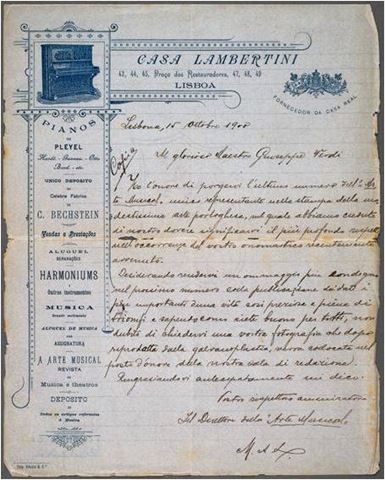 CASA LAMBERTINI
43, 44, 45, Praça dos Restauradores, 47, 48, 49
LISBOA
FORNECEDOR DA CASA REAL
PIANOS
DE
PLEYEL
Bord. etc.
UNICO DEPOSITO
da
Celebre Fabrica
de
C. BECHSTEIN
Vendas a Prestações
ALUGUEL
REPARAÇÕES
HARMONIUMS
Outros instrumentos
MUSICA
ALUGUEL DE MUSICA
ASSIGNATURA
A ARTE MUSICAL
REVISTA
DE
Musica e theatros
DEPOSITO
de
Todos os artigos referentes
á Musica
Lisbona, 15 Ottobre 1900
Copia
Al glorioso Maestro Giuseppe Verdi
Ho l'onore di porgervi l'ultimo numero dell'Arte
Musical, unica rappresentante nella stampa della mo-
destissima arte portoghese, nel quale abbiamo creduto
di nostro dovere significarvi il più profondo rispetto
nell'occorrenza del vostro onomastico recentemente
avvenuto.
Desiderando rendervi un ommaggio più condegno
nel prossimo numero colla pubblicazione di dati i
più importanti d'una vita così preziosa e piena di
trionfi e sapendo come siete buono per tutti, non
dubito di chiedervi una vostra fotografia che dopo
riprodotta dalla galvanoplastia, verrà collocata nel
posto d'onore della nostra sala di redazione.
Ringraziandovi anticipatamente mi dico
Vostro rispettoso ammiratore
Il Direttore della "Arte Musical"
M. A. L.